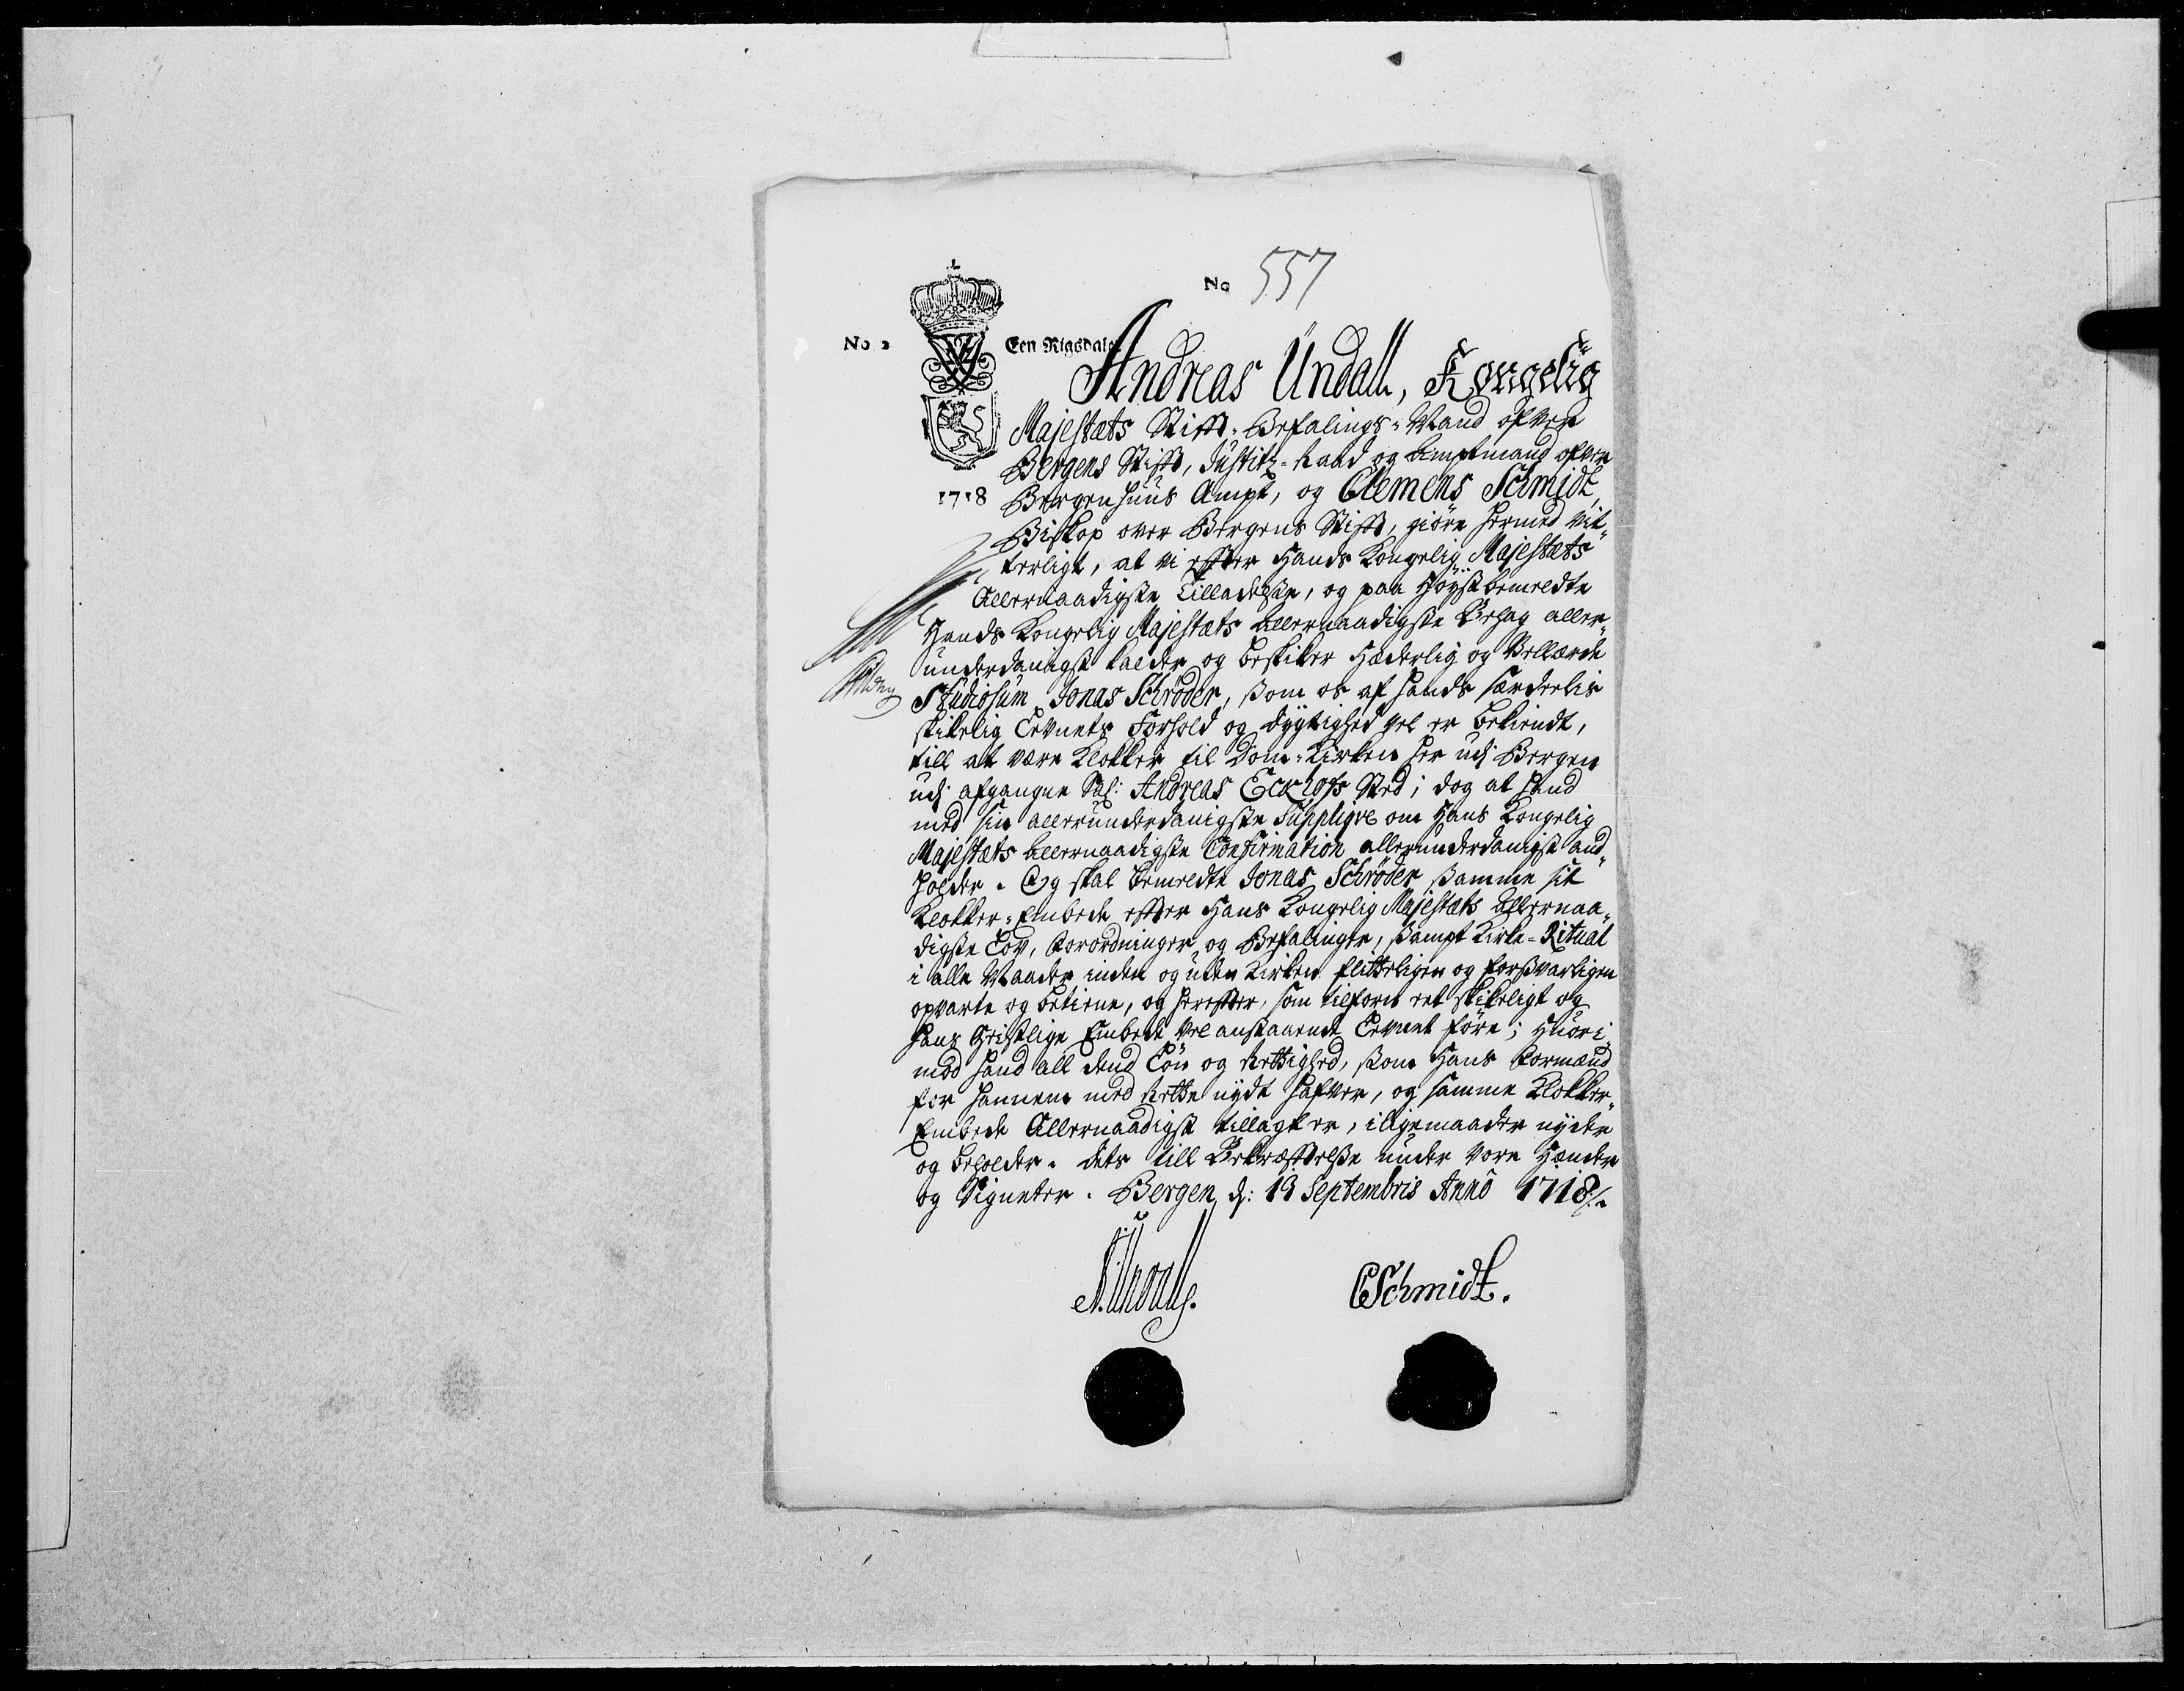 No 557
No 2
Een Rigsdaler
1718
Andreas Undall, Kongelig
Majestæts Stifft-Befalings-Mand ofver
Bergens Stifft, Justitz-Raad og Amptmand ofver
Bergenhuus Ampt, og Clemens Schmidt,
Biskop over Bergens Stifft, giöre hermed vit-
terligt, at vi effter Hands Kongelig Majestæts
Allernaadigste Tilladelse, og paa Höystbemeldte
Hands Kongelig Majestæts Allernaadigste Behag aller-
underdanigst kalder og beskiker Hæderlig og Vellærde
Studiosum Jonas Schröder, som os af hands særdelis
skikelig Levnets Forhold og dygtighed vel er bekiendt,
till at være Klokker til Dom-Kirken her udj Bergen
udj afgangne Sal: Andreas Eckhofs Sted; dog at hand
med sin allerunderdanigste Supplique om Hans Kongelig
Majestæts Allernaadigste Confirmation allerunderdanigst and-
holder. Og skal bemeldte Jonas Schröder samme sit
Klokker-Embede effter Hans Kongelig Majestæts Allernaa-
digste Lov, Forordninger og Befalinger, sampt Kirke-Ritual
i alle Maader inden og uden Kirken flitteligen og forsvarligen
opvarte og betiene, og hereffter, som tilforn et skikeligt og
hans Geistlige Embede vel anstaaende Levnet före; Huori-
mod hand all dend Lön og Rettighed, som Hans Formænd
for hannem med Rette nydt hafver, og samme Klokker-
Embede Allernaadigst tillagt er, iligemaader nyder
og beholder. Dets till Bekræfftelse under vore Hænder
og Signeter. Bergen d: 13 Septembris Annô 1718/.
A. Undall.
CSchmidt.